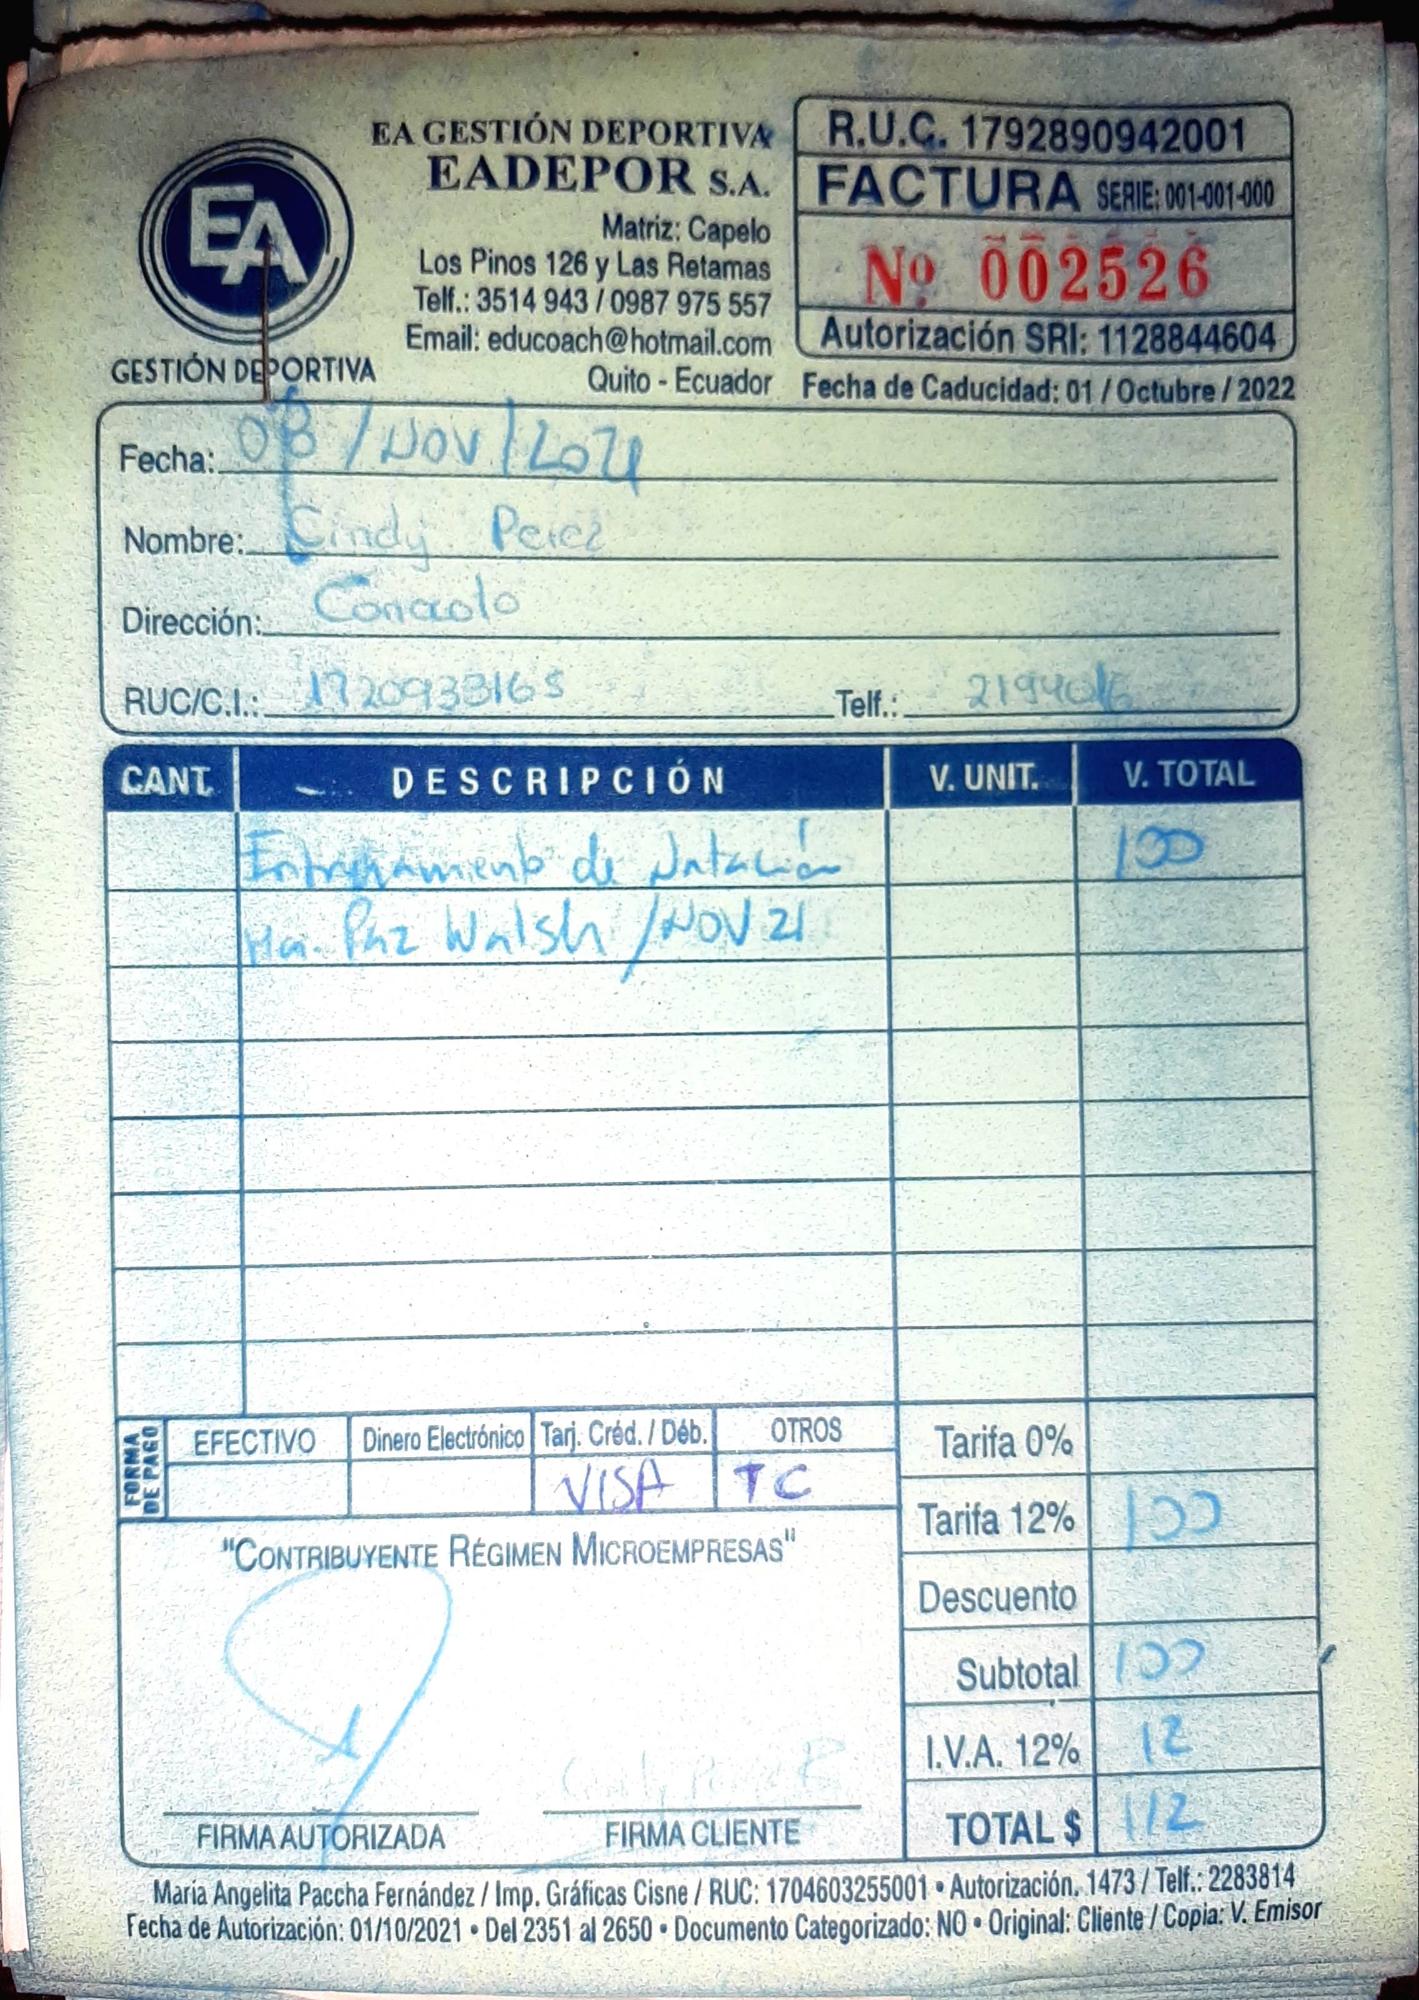 EA GESTIÓN DEPORTIVA
EADEPOR S.A.
Matriz: Capelo
Los Pinos 126 y Las Retamas
Telf.: 3514 943 / 0987 975 557
Email: educoach@hotmail.com
Quito - Ecuador
EA
GESTIÓN DEPORTIVA
R.U.C. 1792890942001
FACTURA SERIE: 001-001-000
Nº 002526
Autorización SRI: 1128844604
Fecha de Caducidad: 01 / Octubre / 2022
Fecha: 08 / NOV / 2021
Nombre: Cindy Perez
Dirección:
RUC/C.I.: 1720933165 Telf.: 2194016
CANT. DESCRIPCIÓN V. UNIT. V. TOTAL
Entrenamiento de Natación 100
Ma. Paz Walsh / NOV 21
FORMA DE PAGO
EFECTIVO Dinero Electrónico Tarj. Créd. / Déb. OTROS
VISA TC
"CONTRIBUYENTE RÉGIMEN MICROEMPRESAS"
Tarifa 0%
Tarifa 12% 100
Descuento
Subtotal 100
I.V.A. 12% 12
TOTAL $ 112
FIRMA AUTORIZADA FIRMA CLIENTE
María Angelita Paccha Fernández / Imp. Gráficas Cisne / RUC: 1704603255001 • Autorización. 1473 / Telf.: 2283814
Fecha de Autorización: 01/10/2021 • Del 2351 al 2650 • Documento Categorizado: NO • Original: Cliente / Copia: V. Emisor